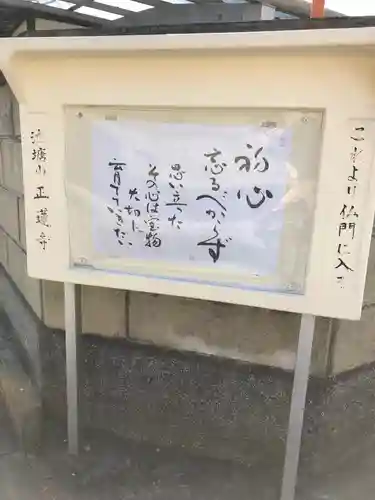 これより仏門に入る
初心
忘るべからず
思い立った
その心は宝物
大切に
育てていきたい
池塘山 正蓮寺